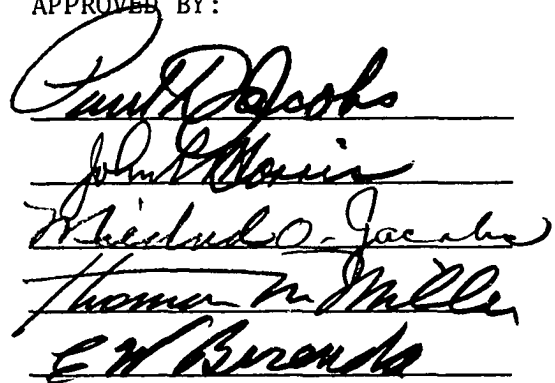 APPROVED BY:
Paul D Jacobs
John Morris
Michael O. Jacobs
Thomas M Miller
E W Berends